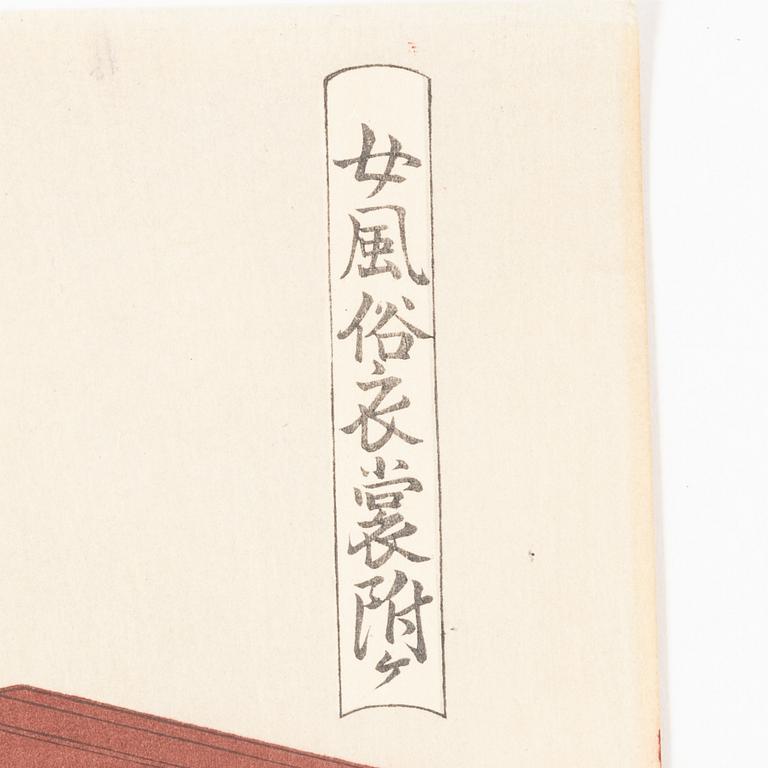 女風俗衣裳附ケ